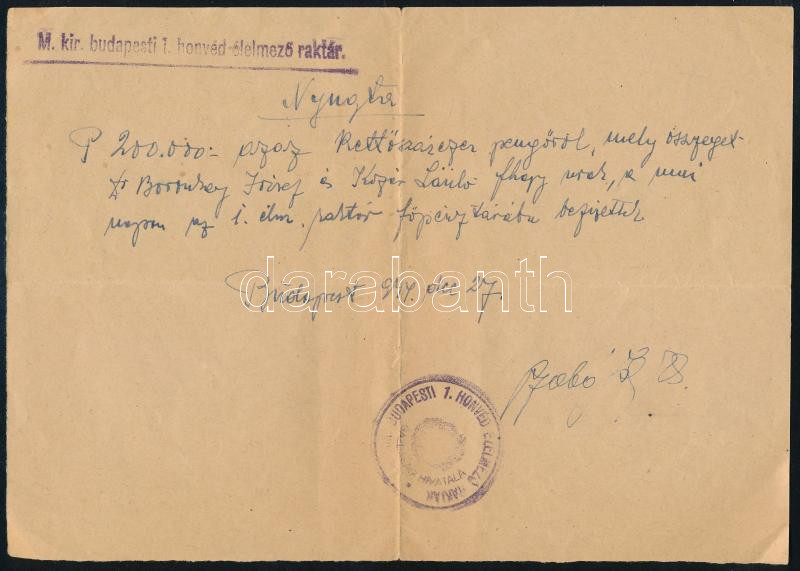 M. kir. budapesti 1. honvéd élelmező raktár.
Nyugta
P 200.000.- azaz Kettőszázezer pengőről, mely összeget
Dr József és László fhgy urak, a mai
napon az 1. élm. raktár főpénztárába befizettek
Budapest 944. dec 27.
Szabó
BUDAPESTI 1. HONVÉD ÉLELMEZŐ
HIVATALA
darabanth